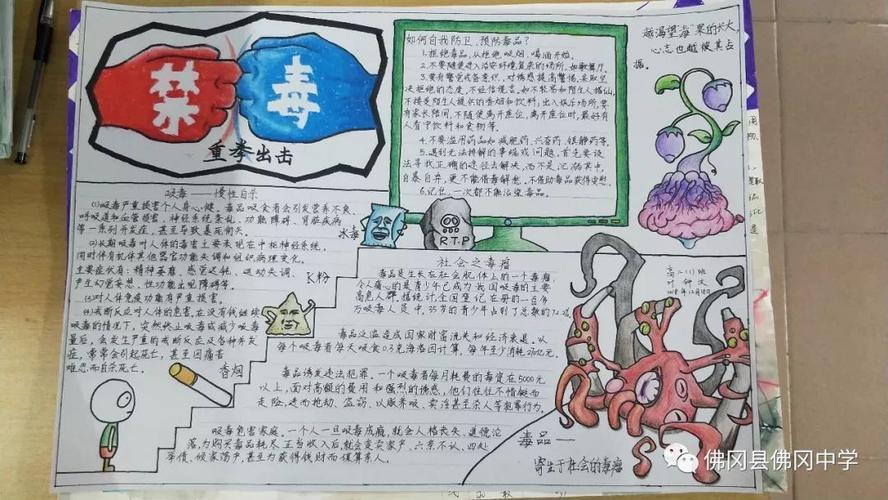 禁
毒
重拳出击
如何自我防卫、预防毒品？
1.拒绝毒品，从拒绝吸烟、喝酒开始。
2.不要随便进入治安环境复杂的场所，如歌舞厅。
3.要有警觉戒备意识，对诱惑提高警惕，采取坚
决拒绝的态度，不轻信谎言。如不轻易和陌生人搭讪，
不接受陌生人提供的香烟和饮料，出入娱乐场所，要
有家长陪同，不随便离开座位，离开座位时，最好有
人看守饮料和食物等。
4.不要滥用药品如减肥药、兴奋药、镇静药等。
5.遇到无法排解的事端或问题，首先要设
法寻找正确的途径去解决，而不是沉溺其中，
自暴自弃，更不能借毒解愁。不借助毒品获得安慰
6.记住，一次都不能沾染毒品。
越渴望"毒"果的长大，
心志也越被其占
据。
吸毒——慢性自杀
(1)吸毒严重损害个人身心健。毒品吸食者会引发营养不良、
呼吸道和血管损害、神经系统紊乱、功能障碍、肾脏疾病
等一系列并发症，甚至导致暴死街头。
(2)长期吸毒对人体的毒害主要表现在中枢神经系统，
同时伴有机体其他器官功能失调和组织病理变化。
主要症状有：精神萎靡、感觉迟钝、运动失调、
产生幻觉妄想、性功能出现障碍等。
(3)对人体免疫功能有严重损害。
(4)戒断反应对人体的危害，在没有钱继续
吸毒的情况下，突然终止吸毒或减少吸毒
量后，会发生严重的戒断反应及各种并发
症，常常会引起死亡，甚至因痛苦
难忍而自杀死亡。
冰毒
R.T.P
K粉
香烟
社会之毒瘤
毒品是生长在社会肌体上的一个毒瘤，
令人痛心的是青少年已成为我国吸毒的主要
高危人群，据统计全国登记在册的一百多
万吸毒人员中，35岁的青少年占到了总数的72.2%
毒品泛滥造成国家财富流失和经济衰退。以
每个吸毒者每天吸食0.3克海洛因计算，每年至少消耗270亿元。
毒品诱发违法犯罪。一个吸毒者每月耗费的毒资在5000元
以上，面对高额的费用和强烈的诱惑，他们往往不惜铤而
走险，进而抢劫、盗窃、以贩养吸、卖淫甚至杀人等犯罪行为。
吸毒危害家庭。一个人一旦吸毒成瘾，就会人格丧失、道德沦
落，为购买毒品耗尽正当收入后，就会变卖家产，六亲不认，四处
举债，倾家荡产，甚至为获得钱财而谋算亲人。
高一(1)班
毒品——
寄生于社会的毒瘤
佛冈县佛冈中学